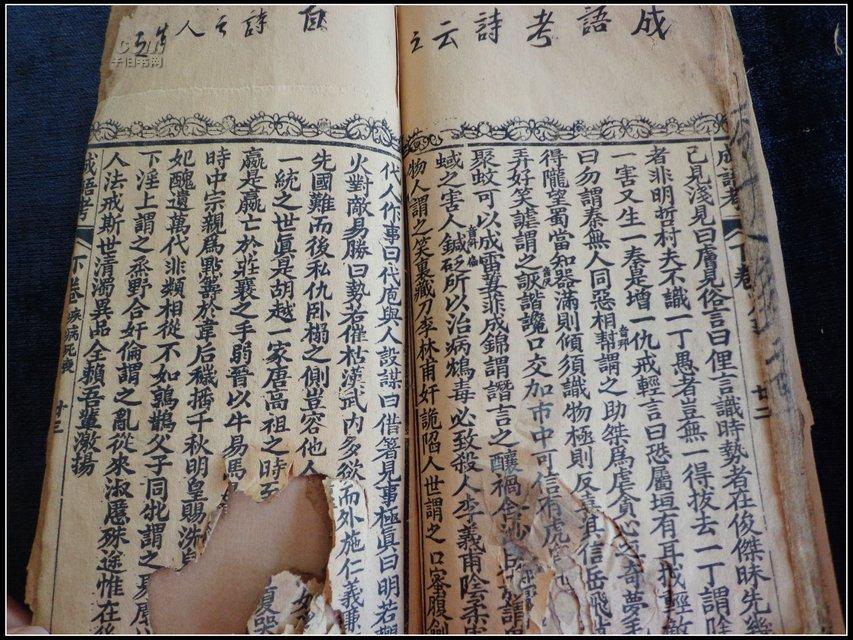 成語考詩云
詩云人
成語考 卷 廿二
己見淺見曰膚見俗言曰俚言識時勢者在俊傑昧先幾
者非明哲村夫不識一丁愚者豈無一得拔去一丁謂除
一害又生一秦是增一仇戒輕言曰恐屬垣有耳戒輕敵
曰勿謂秦無人同惡相幇謂之助桀爲虐貪心夢
得隴望蜀當知器滿則傾須識物極則反信岳飛
弄好笑謔謂之詼諧讒口交加市中可信有虎
聚蚊可以成雷萋非成錦謂譖言之釀禍含沙
蜮之害人鍼砭所以治病鴆毒必致殺人李義甫陰柔害
物人謂之笑裏藏刀李林甫奸詭陷人世謂之口蜜腹劍
代人作事曰代庖與人設謀曰借箸見事極眞曰明若
火對敵易勝曰勢若催枯漢武內多欲而外施仁義
先國難而後私仇卧榻之側豈容他人
一統之世眞是胡越一家唐高祖之時
嬴是嬴亡於莊襄之手弱晉以牛易馬
時中宗親爲點籌於韋后穢播千秋明皇賜洗
妃醜遺萬代非類相從不如鶉鵲父子同牝謂之
下淫上謂之烝野合奸倫謂之亂從來淑慝殊途惟在
夏
人法戒斯世清濁異品全賴吾輩激揚
成語考 下卷 疾病死喪 十三